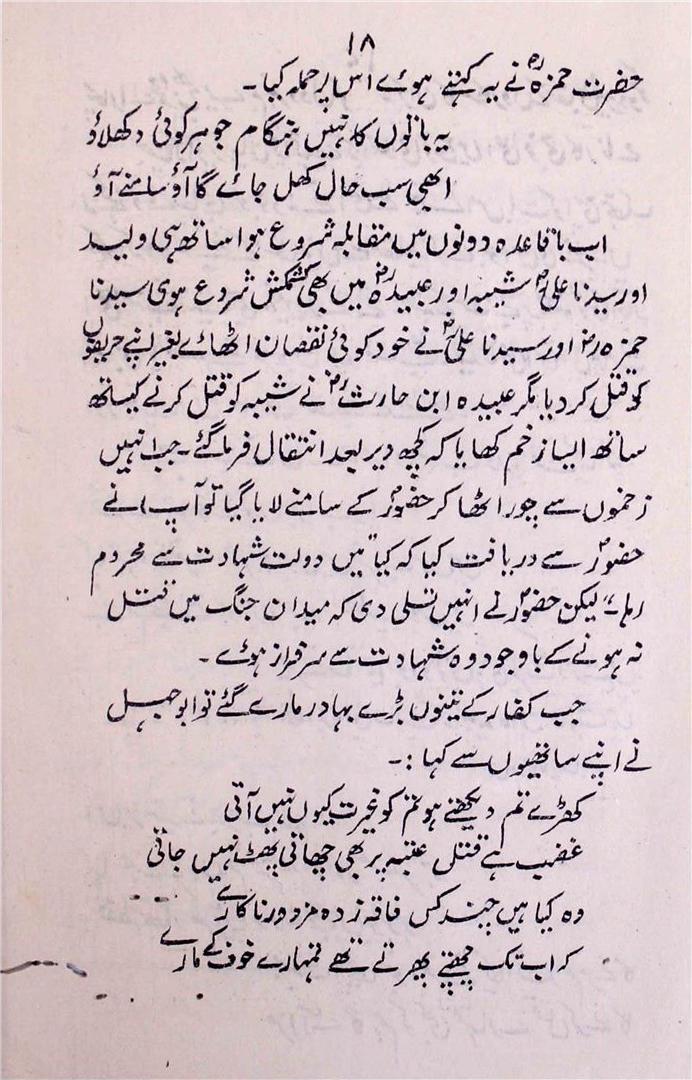 ۱۸
حضرت حمزہؓ نے یہ کہتے ہوئے اس پر حملہ کیا ۔
یہ باتوں کا نہیں ہنگام جوہر کوئی دکھلاؤ
ابھی سب حال کھل جائے گا آؤ سامنے آؤ
اب باقاعدہ دونوں میں مقابلہ شروع ہوا ساتھ ہی ولید
اور سیدنا علیؓ شیبہ اور عبیدہؓ میں بھی کشمکش شروع ہوی سیدنا
حمزہؓ اور سیدنا علیؓ نے خود کوئی نقصان اٹھائے بغیر اپنے حریفوں
کو قتل کر دیا مگر عبیدہ ابن حارثؓ نے شیبہ کو قتل کرنے کیساتھ
ساتھ ایسا زخم کھایا کہ کچھ دیر بعد انتقال فرما گئے ۔ جب انہیں
زخموں سے چور اٹھا کر حضورؐ کے سامنے لایا گیا تو آپ نے
حضورؐ سے دریافت کیا کہ کیا "میں دولت شہادت سے محروم
رہا ۔" لیکن حضورؐ نے انہیں تسلی دی کہ میدان جنگ میں قتل
نہ ہونے کے باوجود وہ شہادت سے سرفراز ہوئے ۔
جب کفار کے تینوں بڑے بہادر مارے گئے تو ابو جہل
نے اپنے ساتھیوں سے کہا :۔
کھڑے تم دیکھتے ہو تم کو غیرت کیوں نہیں آتی
غضب ہے قتل عتبہ پر بھی چھاتی پھٹ نہیں جاتی
وہ کیا ہیں چند کس فاقہ زدہ مزدور ناکارے
کہ اب تک چھپتے پھرتے تھے تمہارے خوف کے مارے